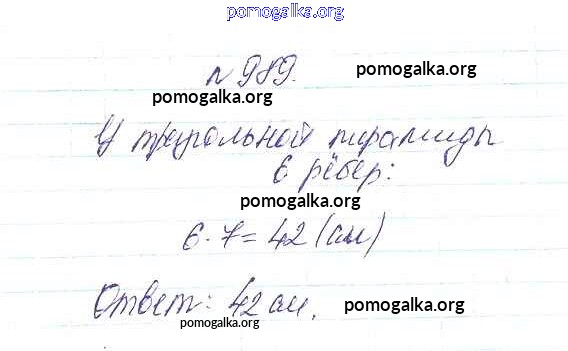 pomogalka.org
№989. pomogalka.org
pomogalka.org
У треугольной пирамиды
6 рёбер:
pomogalka.org
6·7=42 (см)
Ответ: 42 см. pomogalka.org
pomogalka.org